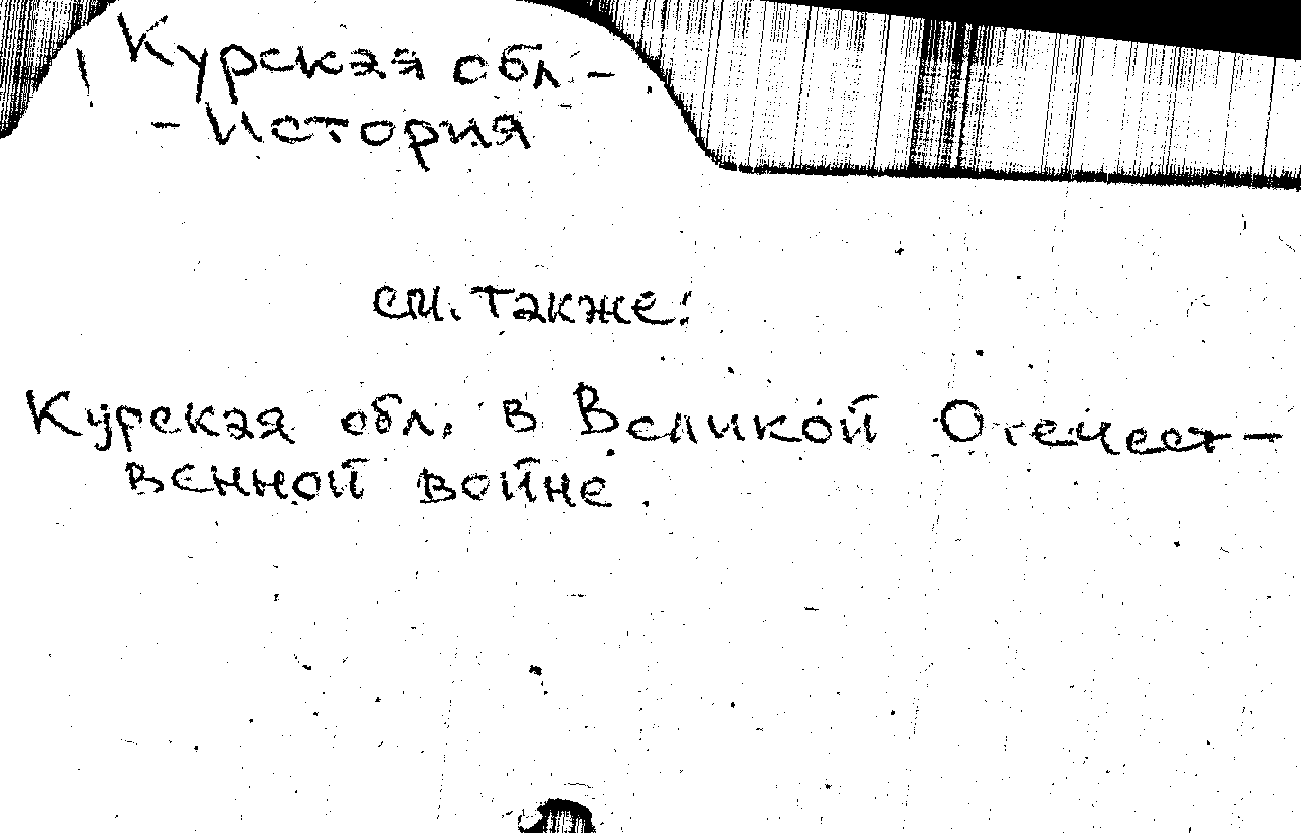 Курская обл. -
- История
см. также:
Курская обл. в Великой Отечест-
венной войне.